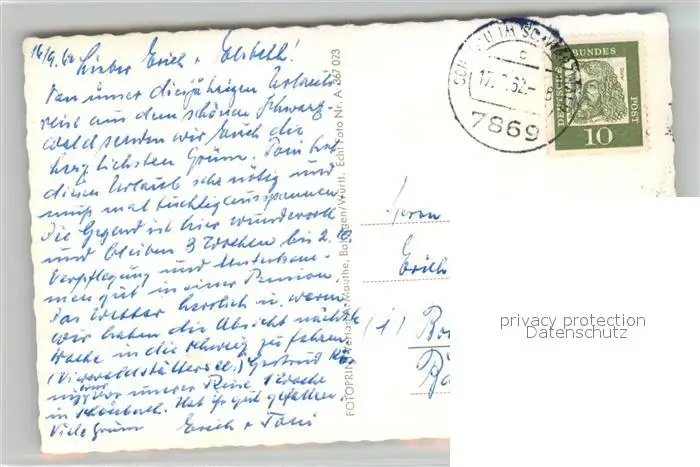 16/9.62 Lieber Erich + Elsbeth!
Von unser diesjährigen Urlaubs-
reise aus dem schönen Schwarz-
wald senden wir Euch die
herzlichsten Grüße. Toni hat
diesen Urlaub sehr nötig und
muß mal tüchtig ausspannen.
Die Gegend ist hier wundervoll
und bleiben 3 Wochen bis 2.10.
Verpflegung und Unterkom-
men gut in einer Pension.
Das Wetter herrlich u. warm.
Wir haben die Absicht nächste
Woche in die Schweiz zu fahren
(Vierwaldstättersee.) Gertrud
war vor unserer Reise 1 Woche
in Schönbach. Hat ihr gut gefallen.
Viele Grüße Erich + Toni
FOTOPRINT Verlag Mauthe, Balingen/Württ. Echt Foto Nr. A 367 023
17. 62.-8
7869
DEUTSCHE BUNDESPOST
Dürer
10
Herrn
Erich
(1)
privacy protection
Datenschutz